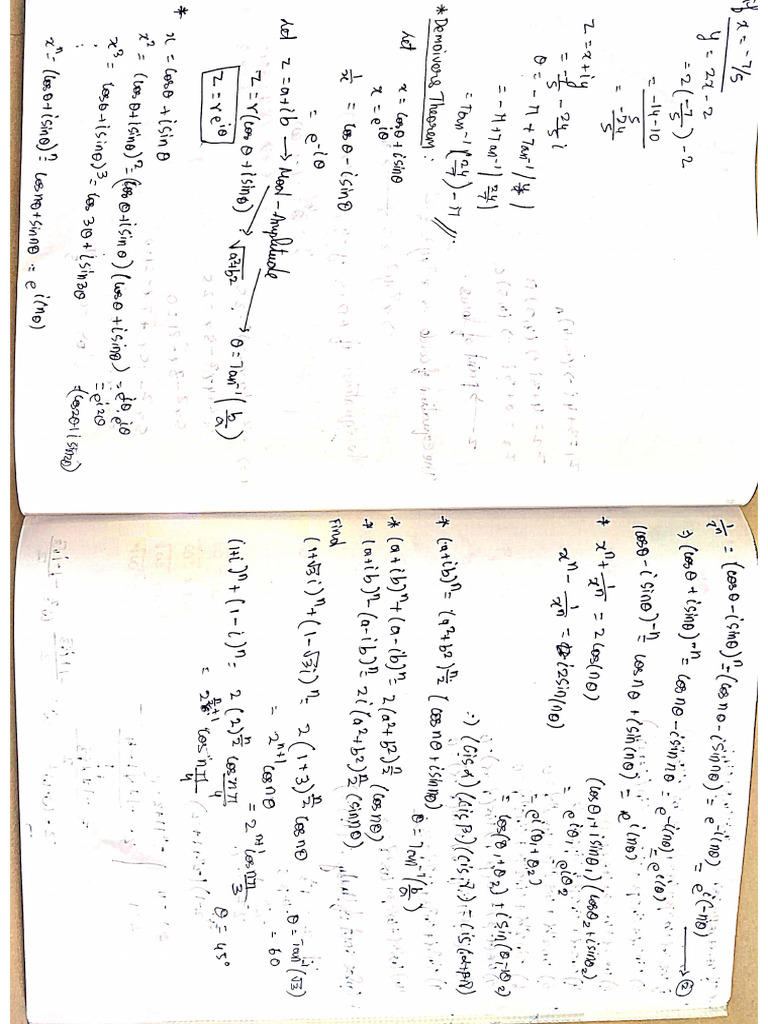 if x = -7/5
y = 2x - 2
= 2(-7/5) - 2
= -14-10/5
= -24/5
z = x + iy
= -7/5 - 24/5 i
θ = -π + Tan⁻¹|y/x|
= -π + Tan⁻¹|24/7|
= Tan⁻¹(24/7) - π //.
* Demoivers Theorem :
let x = cosθ + isinθ
x = e^iθ
1/x = cosθ - isinθ
= e^-iθ
let z = a + ib → Mod - Amplitude
z = r(cosθ + isinθ) → √a²+b² → θ = Tan⁻¹(b/a)
z = re^iθ
* x = cosθ + isinθ
x² = (cosθ + isinθ)² = (cosθ + isinθ)(cosθ + isinθ) = e^iθ . e^iθ
= e^i2θ
= (cos2θ + isin2θ)
x³ = (cosθ + isinθ)³ = cos3θ + isin3θ
:
xⁿ = (cosθ + isinθ)ⁿ = cosnθ + sinnθ = e^i(nθ)
1/xⁿ = (cosθ - isinθ)ⁿ = (cosnθ - isinnθ) = e^-i(nθ) = e^i(-nθ)
⇒ (cosθ + isinθ)⁻ⁿ = cosnθ - isinnθ = e^-i(nθ) = e^i(θ) → ②
(cosθ - isinθ)⁻ⁿ = cosnθ + isin(nθ) = e^i(nθ)
* xⁿ + 1/xⁿ = 2cos(nθ)
xⁿ - 1/xⁿ = i2sin(nθ)
(cosθ₁ + isinθ₁)(cosθ₂ + isinθ₂)
= e^iθ₁ . e^iθ₂
= e^i(θ₁+θ₂)
= cos(θ₁+θ₂) + isin(θ₁+θ₂)
∴ (cisα)(cisβ)(cisγ) = cis(α+β+γ)
* (a+ib)ⁿ = (a²+b²)^n/2 (cosnθ + isinnθ)
θ = Tan⁻¹(b/a)
* (a+ib)ⁿ + (a-ib)ⁿ = 2(a²+b²)^n/2 (cosnθ)
* (a+ib)ⁿ - (a-ib)ⁿ = 2i(a²+b²)^n/2 (sinnθ)
Find
(1+√3i)ⁿ + (1-√3i)ⁿ = 2(1+3)^n/2 cosnθ θ = Tan⁻¹(√3)
= 2^n+1 cosnθ = 60
= 2^n+1 cosnπ/3
(1+i)ⁿ + (1-i)ⁿ = 2(2)^n/2 cosnπ/4 θ = 45°